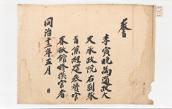 誊
李寅皓為通政大
夫承政院右副承
旨兼經筵參贊官
春秋館修撰官者
同治十三年五月 日